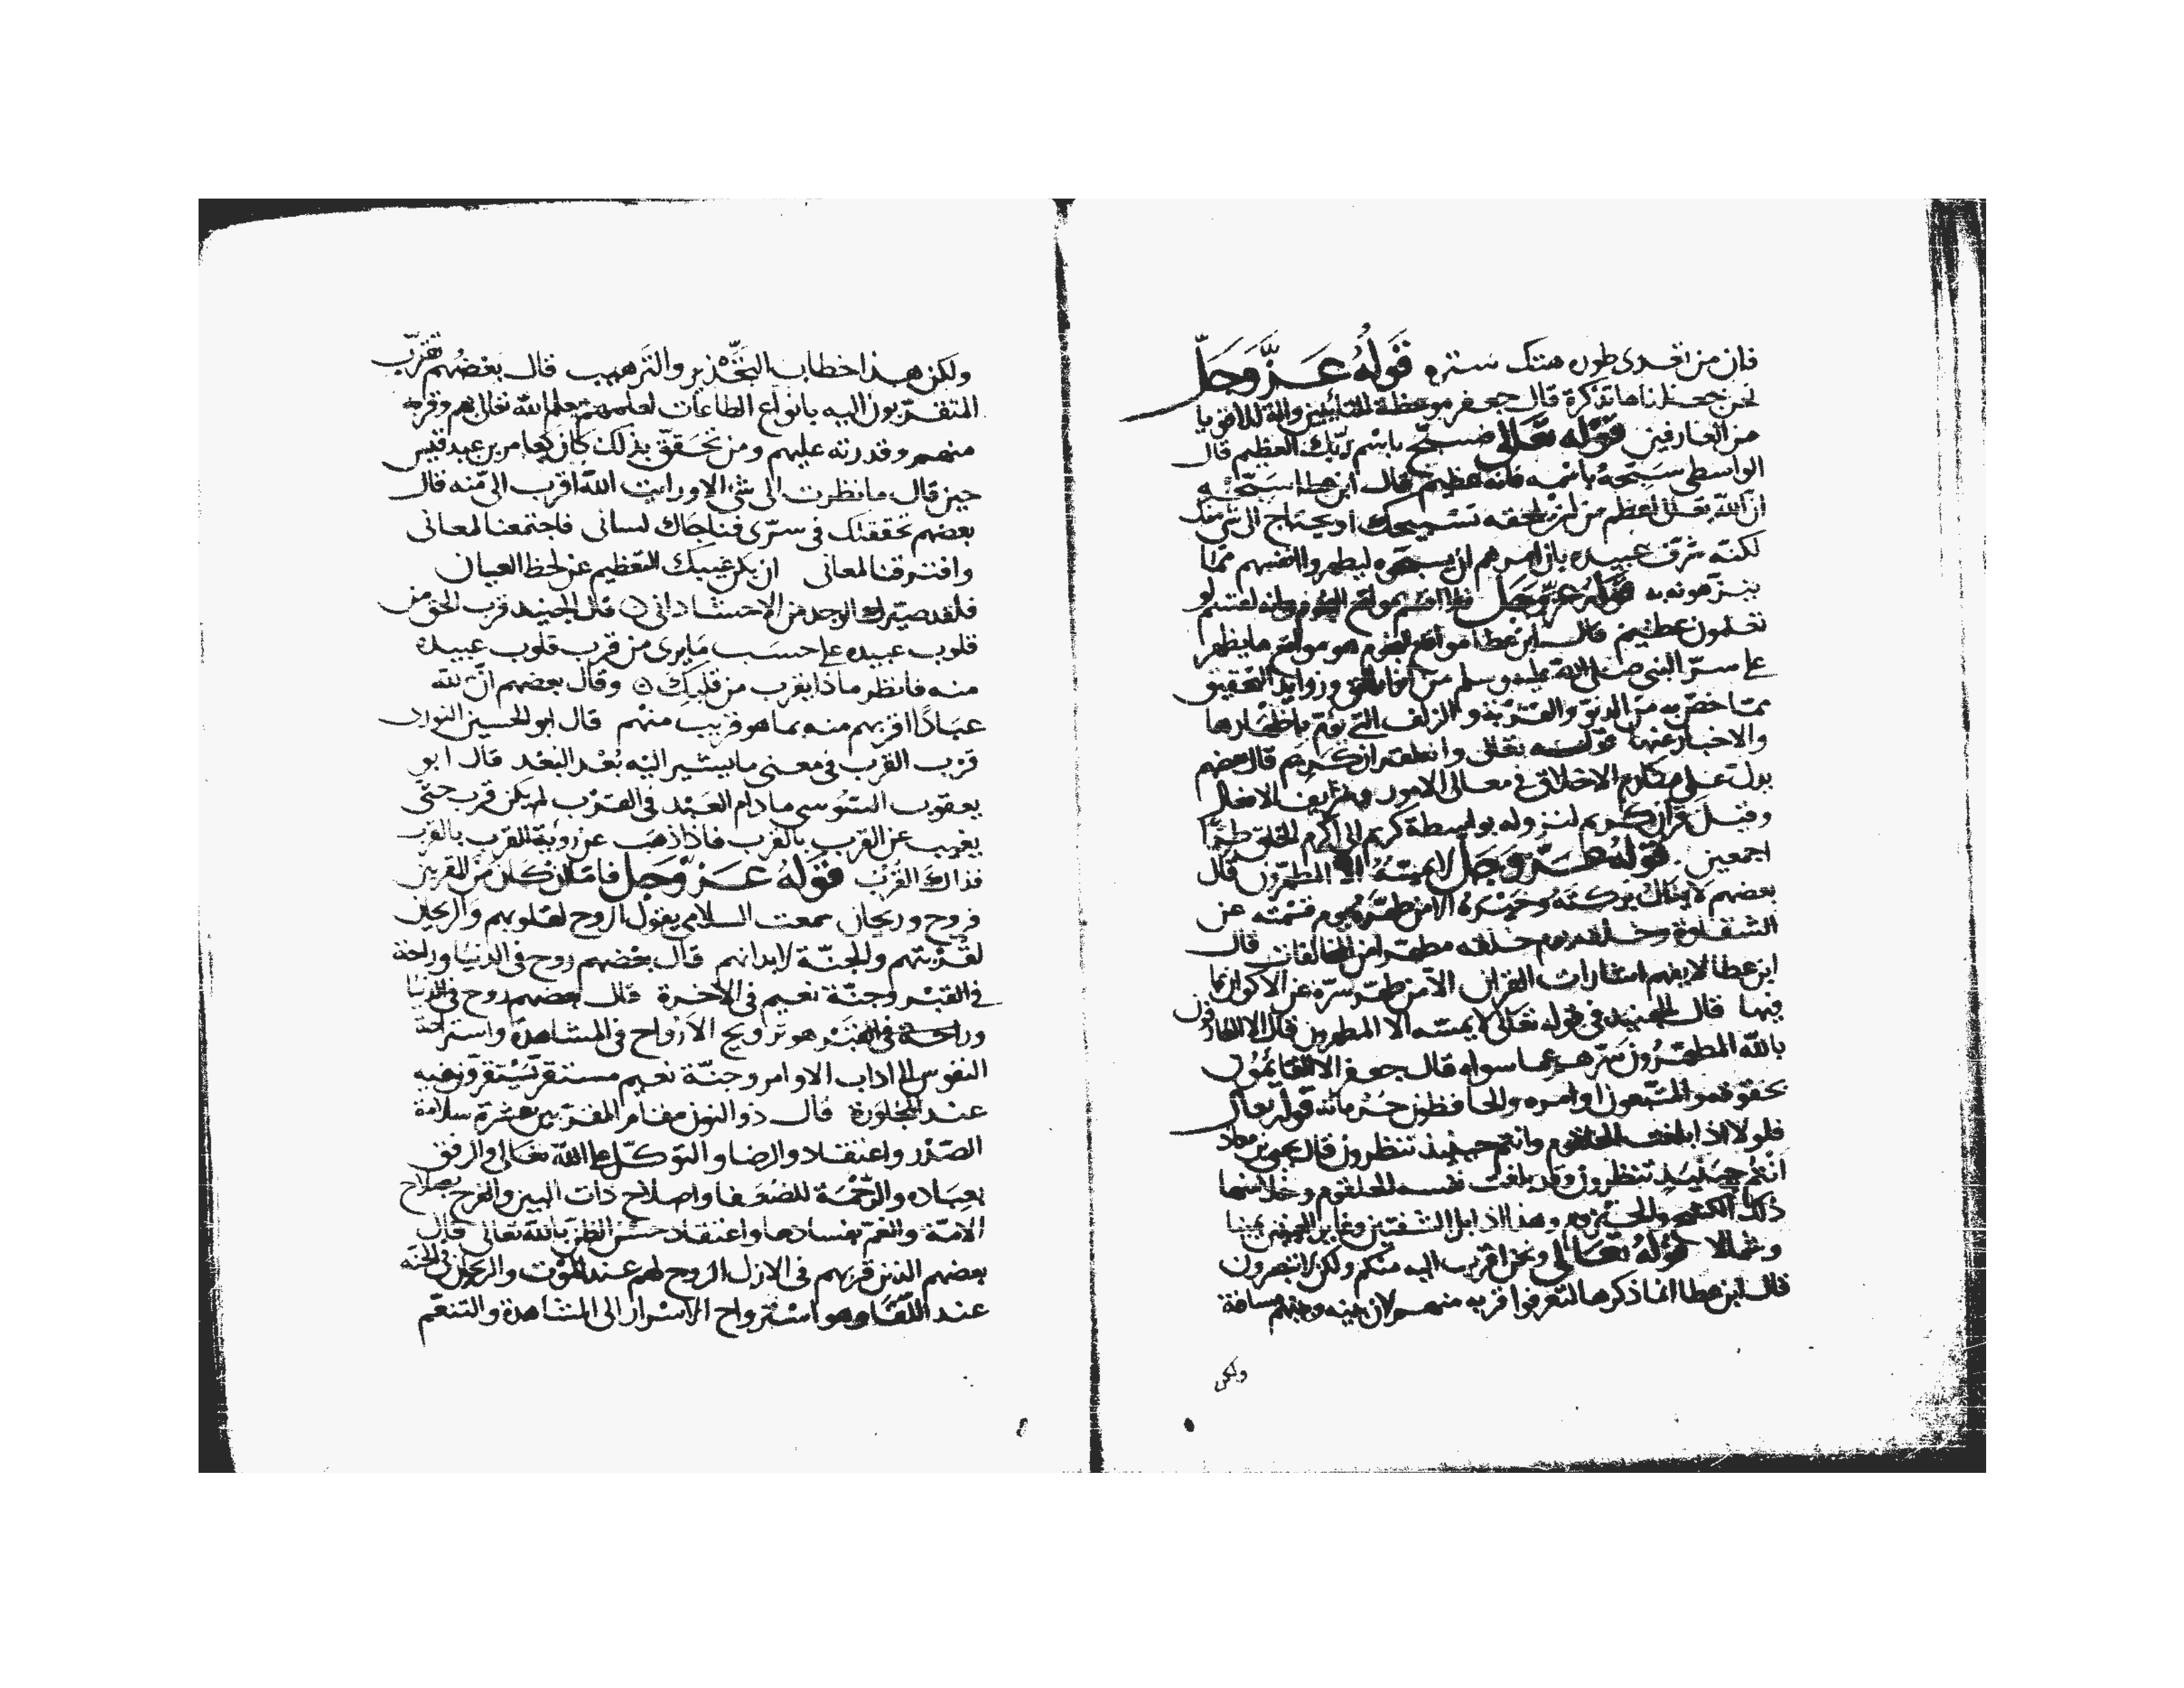 فان من تعدى طوره هتك ستره قوله عز وجل
نحن جعلناها تذكرة قال جعفر موعظة للتائبين
من العارفين قوله تعالى فسبح باسم ربك العظيم قال
الواسطى سبحه باسمه فانه عظيم قال ابن عطا سبحه
ان الله تعالى اعظم من ان يلحقه تسبيحك او يحتاج الى شى منك
لكنه شرف عبيده بان امرهم ان يسبحوه ليطهروا انفسهم مما
ينزهونه به قوله عز وجل فلا اقسم بمواقع النجوم وانه لقسم لو
تعلمون عظيم قال ابن عطا مواقع النجوم هو مواقع ما يظهر
على سر النبى صلى الله عليه وسلم من وزوايد التحقيق
مما خص به من الدنو والقربة والزلف التى لم يؤمر باظهارها
والاخبار عنها قوله تعالى وانه لقران كريم قال بعضهم
يدل على مكارم الاخلاق فى معالى الامور وشرايف الافعال
وقيل قران كريم لنزوله بواسطة كريم الى اكرم الخلق طرًا
اجمعين قوله عز وجل لا يمسه الا المطهرون قال
بعضهم لا ينالك بركته وخيره الا من طهره يوم قسمته عن
الشقاوة وخلقه يوم خلقه مطهرا من المخالفات قال
ابن عطا لا يفهم اشارات القران الا من طهر سره عن الاكوان بما
فيها قال الجنيد فى قوله تعالى لا يمسه الا المطهرون قال الا العارفون
بالله المطهرون سرهم عما سواه قال جعفر الا القائمون
بحقوقه والمتبعون اوامره والحافظون حرماته قوله تعالى
فلولا اذا بلغت الحلقوم وانتم حينئذ تنظرون قال يحيى بن معاذ
انتم حينئذ تنظرون وقد بلغت نفسه الحلقوم
ذلك وهذا اذا بل الشفتين يمينا
وشمالا قوله تعالى ونحن اقرب اليه منكم ولكن لا تبصرون
قال ابن عطا انما ذكر هذا لتعرفوا قربه منهم لان بينه وبينهم مسافة
ولكن
ولكن هذا خطاب التحذير والترهيب قال بعضهم تقرب
المتقربون اليه بانواع الطاعات لعلمهم بعلم الله تعالى بهم وقربه
منهم وقدرته عليهم ومن تحقق بذلك كان كعامر بن عبد قيس
حين قال ما نظرت الى شى الا ورايت الله اقرب الى منه قال
بعضهم تحققتك فى سرى فناجاك لسانى فاجتمعنا لمعانى
وافترقنا لمعانى ان يكن غيبك التعظيم عن لحظ العيان
فلقد صيرك الوجد من الاحشاء دانى ٥ قال الجنيد قرب الحق من
قلوب عبيده على حسب ما يرى من قرب قلوب عبيده
منه فانظر ماذا يقرب من قلبك ٥ وقال بعضهم ان لله
عبادًا اقربهم منه بما هو قريب منهم قال ابو الحسين النورى
قرب القرب فى معنى ما يشير اليه بعد البعد قال ابو
يعقوب السوسى ما دام العبد فى القرب لم يكن قرب حتى
يغيب عن القرب بالقرب فاذا ذهب عن روية القرب بالقرب
فذاك القرب قوله عز وجل فاما ان كان من المقربين
فروح وريحان سمعت السلامى يقول الروح لقلوبهم والريحان
لقربتهم والجنة لابدانهم قال بعضهم روح فى الدنيا وراحة
فى القبر وجنة نعيم فى الاخرة قال بعضهم روح فى الدنيا
وراحة فى القبر هو ترويح الارواح فى المشاهدة واستراحة
النفوس الى اداب الاوامر وجنة نعيم مستقر يستقرون فيه
عند المجاورة قال ذو النون مقام المقربين عشرة سلامة
الصدر واعتقاد والرضا والتوكل على الله تعالى والرفق
بعباده والرحمة للضعفا واصلاح ذات البين والفرح بصلاح
الامة والغم بفسادها واعتقاد حسن الظن بالله تعالى قال
بعضهم الذين قربهم فى الازل الروح لهم عند الموت والريحان فى الجنه
عند اللقاء وهو استرواح الاسرار الى المشاهدة والتنعم